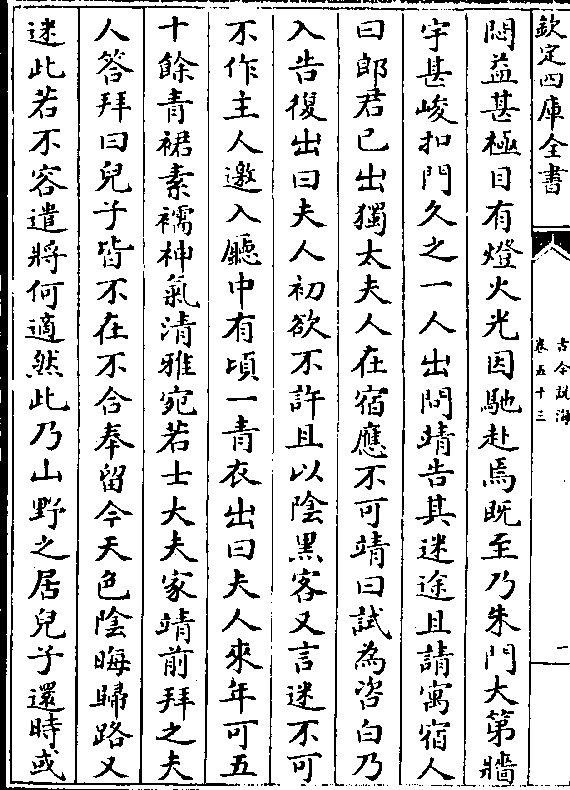 欽定四庫全書
古今説海
卷五十三
二
悶益甚極目有燈火光因馳赴焉既至乃朱門大第牆
宇甚峻扣門久之一人出問靖告其迷途且請寓宿人
曰郎君已出獨太夫人在宿應不可靖曰試為咨白乃
入告復出曰夫人初欲不許且以陰黒客又言迷不可
不作主人邀入廳中有頃一青衣出曰夫人來年可五
十餘青裙素襦神氣清雅宛若士大夫家靖前拜之夫
人答拜曰兒子皆不在不合奉留今天色陰晦歸路又
迷此若不容遣將何適然此乃山野之居兒子還時或